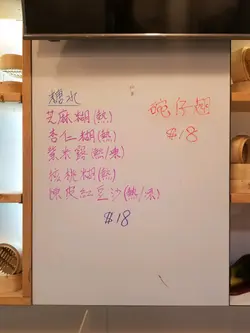 糖水
芝麻糊(熱)
杏仁糊(熱)
紫米露(熱/凍)
核桃糊(熱)
陳皮紅豆沙(熱/凍)
$18
砵仔糕
$18